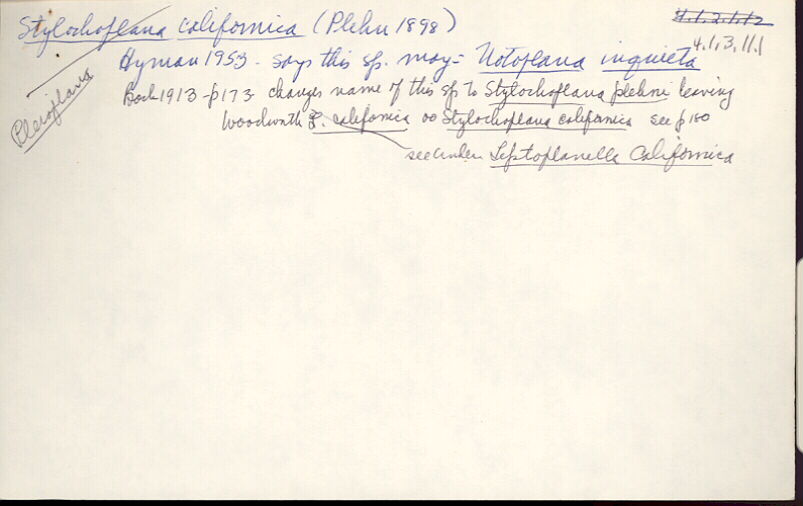 Stylochoplana californica (Plehn 1898)
4.1.2.1.12
4.1.3.11.1
Hyman 1953 - says this sp. may = Notoplana inquieta
Pleioplana
Bock 1913 - p173 changes name of this sp to Stylochoplana plehni leaving
Woodworth L. californica as Stylochoplana californica see p 180
see under Leptoplanella Californica